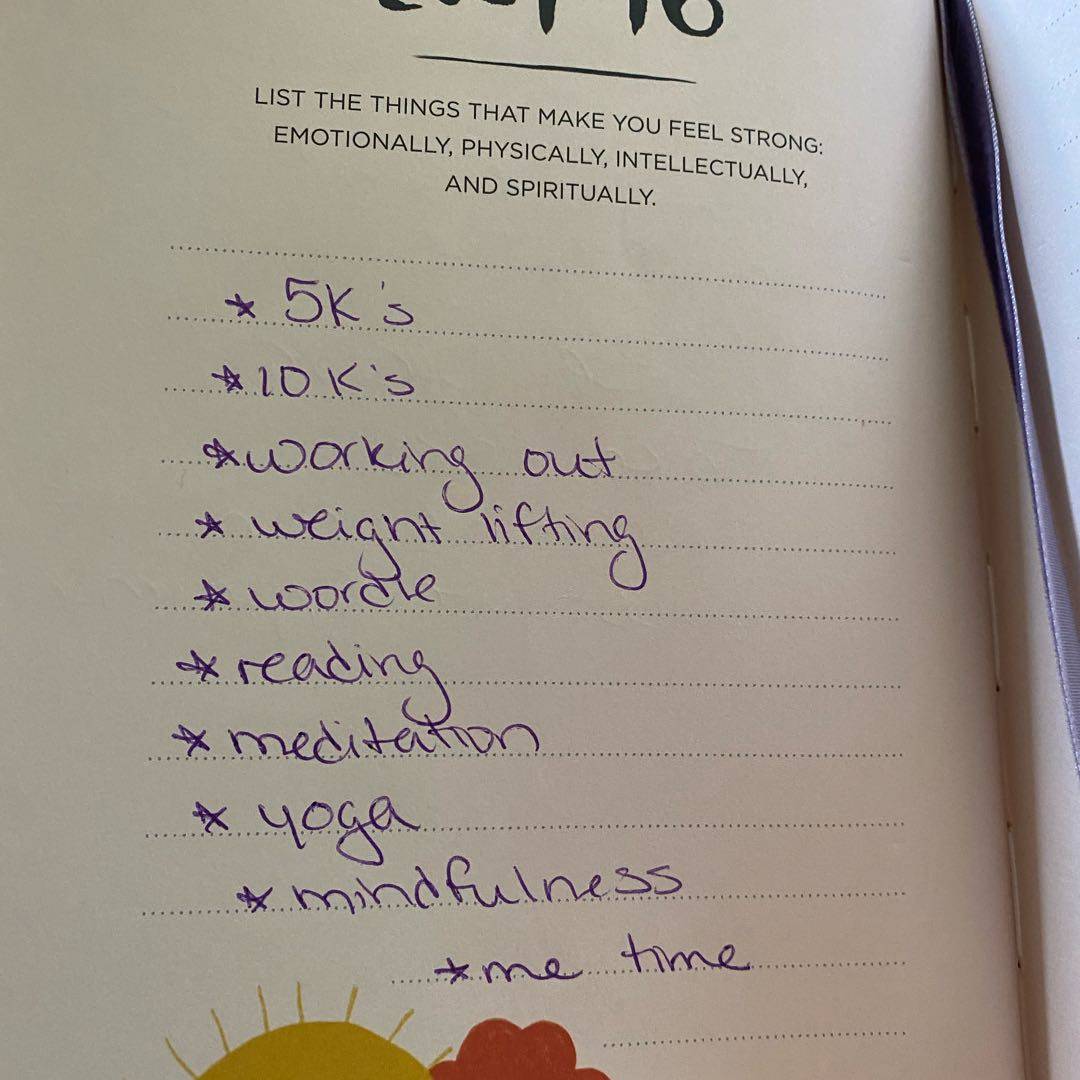 LIST THE THINGS THAT MAKE YOU FEEL STRONG:
EMOTIONALLY, PHYSICALLY, INTELLECTUALLY,
AND SPIRITUALLY.
* 5K's
* 10K's
* working out
* weight lifting
* wordle
* reading
* meditation
* yoga
* mindfulness
* me time